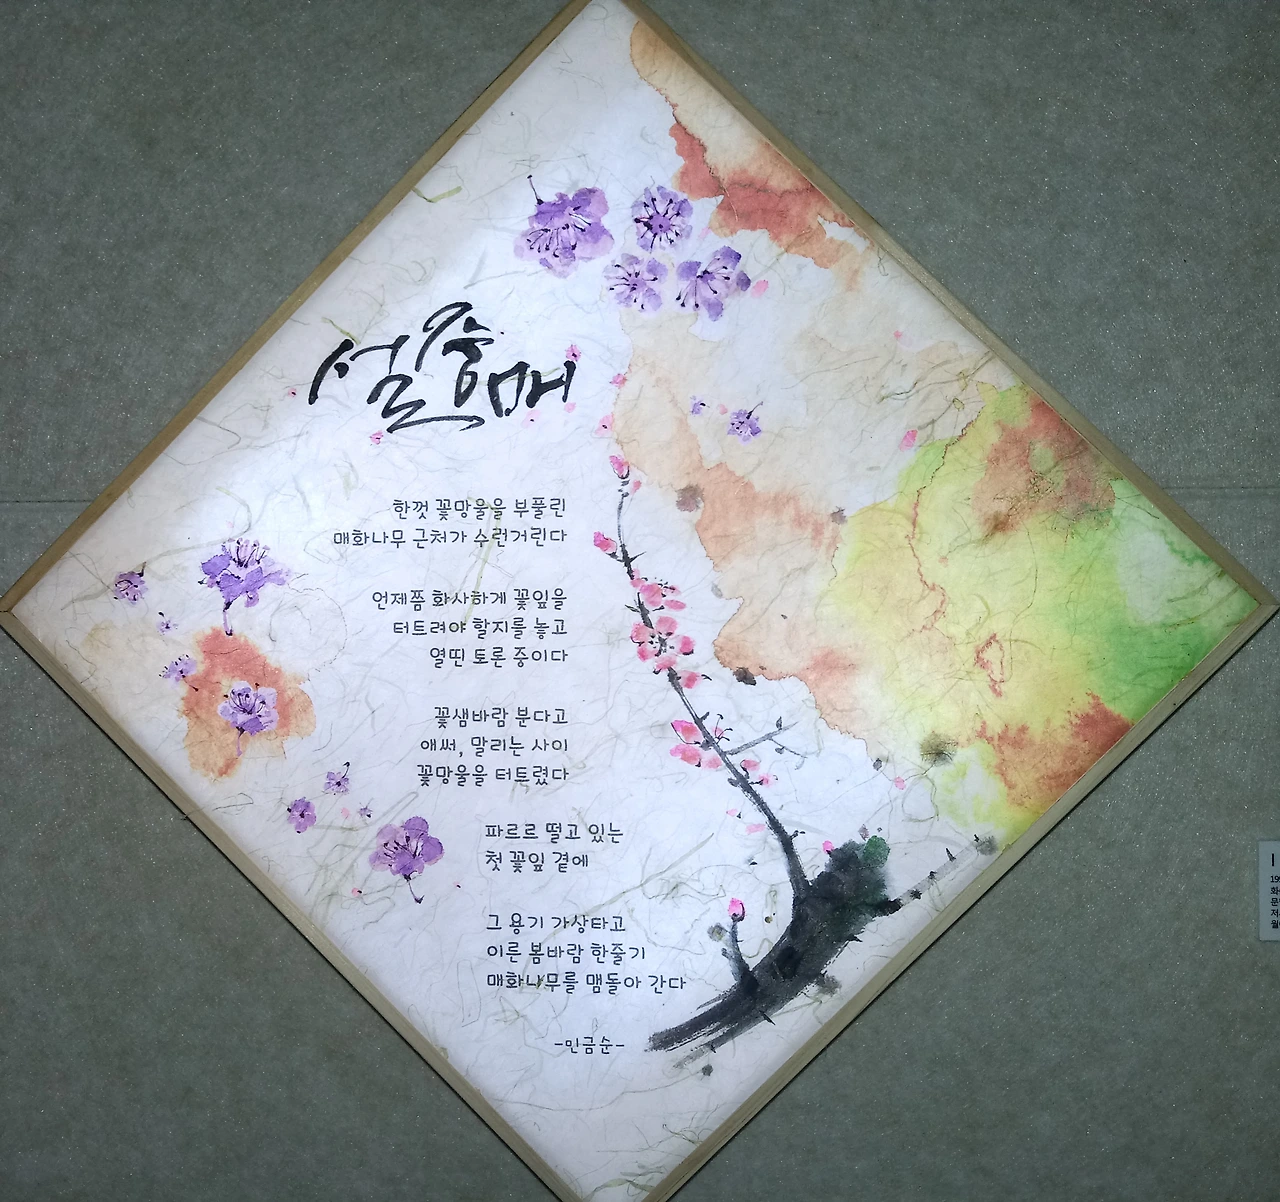 설중매
한껏 꽃망울을 부풀린
매화나무 근처가 수런거린다
언제쯤 화사하게 꽃잎을
터트려야 할지를 놓고
열띤 토론 중이다
꽃샘바람 분다고
애써, 말리는 사이
꽃망울을 터트렸다
파르르 떨고 있는
첫 꽃잎 곁에
그 용기 가상타고
이른 봄바람 한줄기
매화나무를 맴돌아 간다
-민금순-